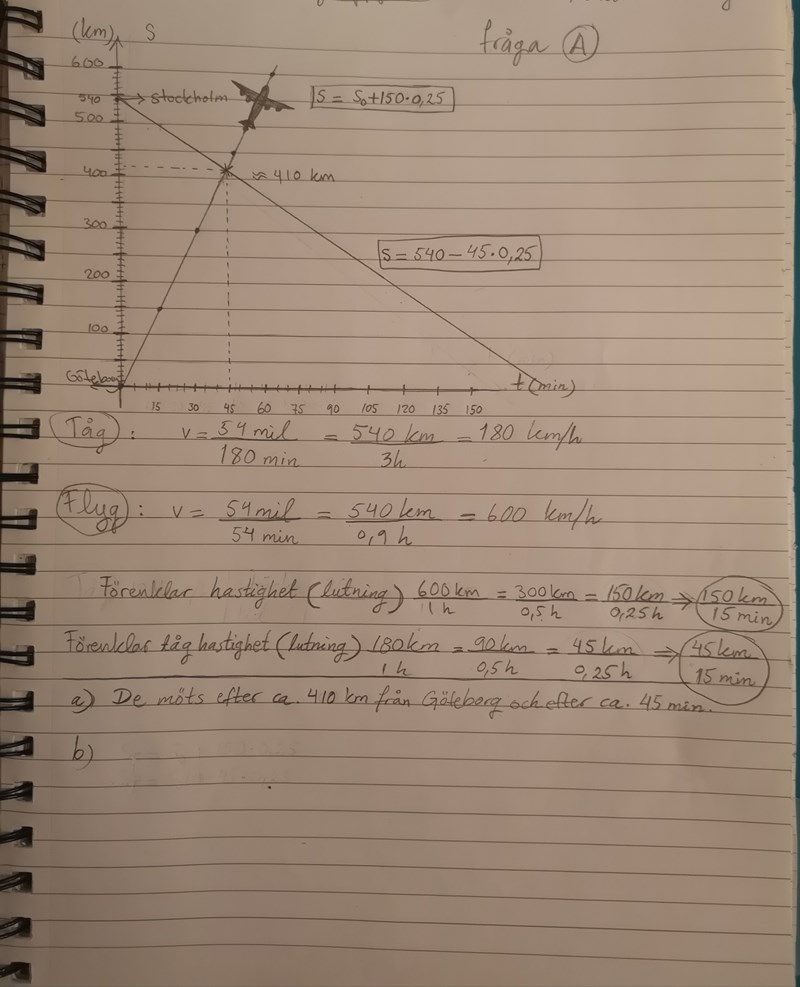 (km) S
fråga A
600
540 → Stockholm
S = S₀+150·0,25
500
400
≈ 410 km
300
S = 540 − 45·0,25
200
100
Göteborg
t (min)
15 30 45 60 75 90 105 120 135 150
Tåg : v = 54 mil / 180 min = 540 km / 3h = 180 km/h
Flyg : v = 54 mil / 54 min = 540 km / 0,9 h = 600 km/h
Förenklar hastighet (lutning) 600 km / 1 h = 300 km / 0,5 h = 150 km / 0,25 h ⇒ 150 km / 15 min
Förenklar tåg hastighet (lutning) 180 km / 1 h = 90 km / 0,5 h = 45 km / 0,25 h ⇒ 45 km / 15 min
a) De möts efter ca. 410 km från Göteborg och efter ca. 45 min.
b)